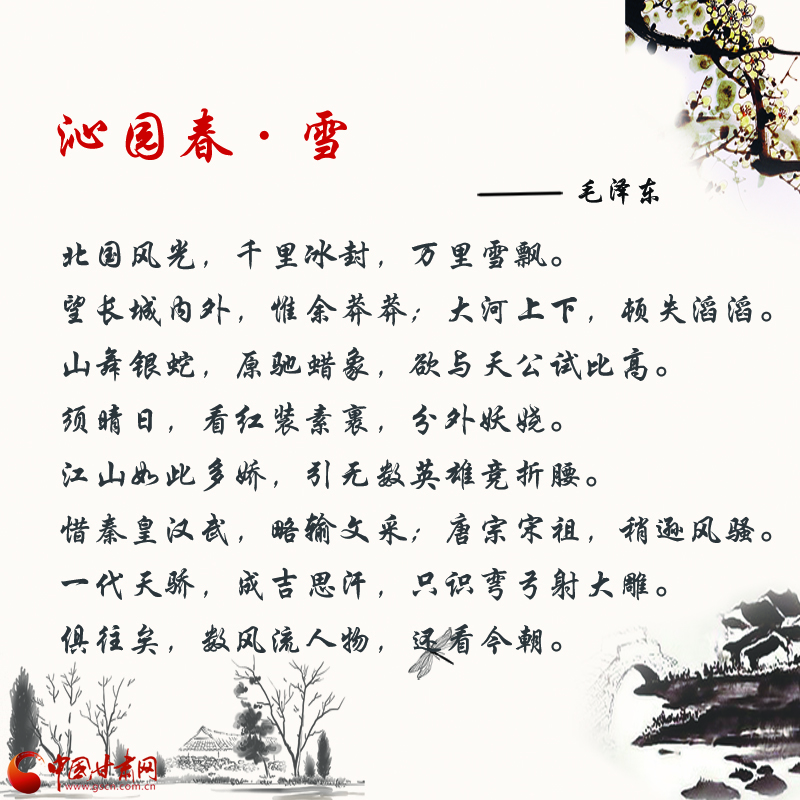 沁园春·雪
——毛泽东
北国风光，千里冰封，万里雪飘。
望长城内外，惟余莽莽；大河上下，顿失滔滔。
山舞银蛇，原驰蜡象，欲与天公试比高。
须晴日，看红装素裹，分外妖娆。
江山如此多娇，引无数英雄竞折腰。
惜秦皇汉武，略输文采；唐宗宋祖，稍逊风骚。
一代天骄，成吉思汗，只识弯弓射大雕。
俱往矣，数风流人物，还看今朝。
中国甘肃网
www.gscn.com.cn